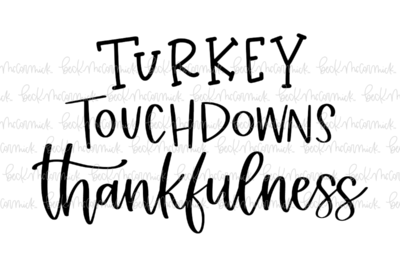 TURKEY
TOUCHDOWNS
thankfulness